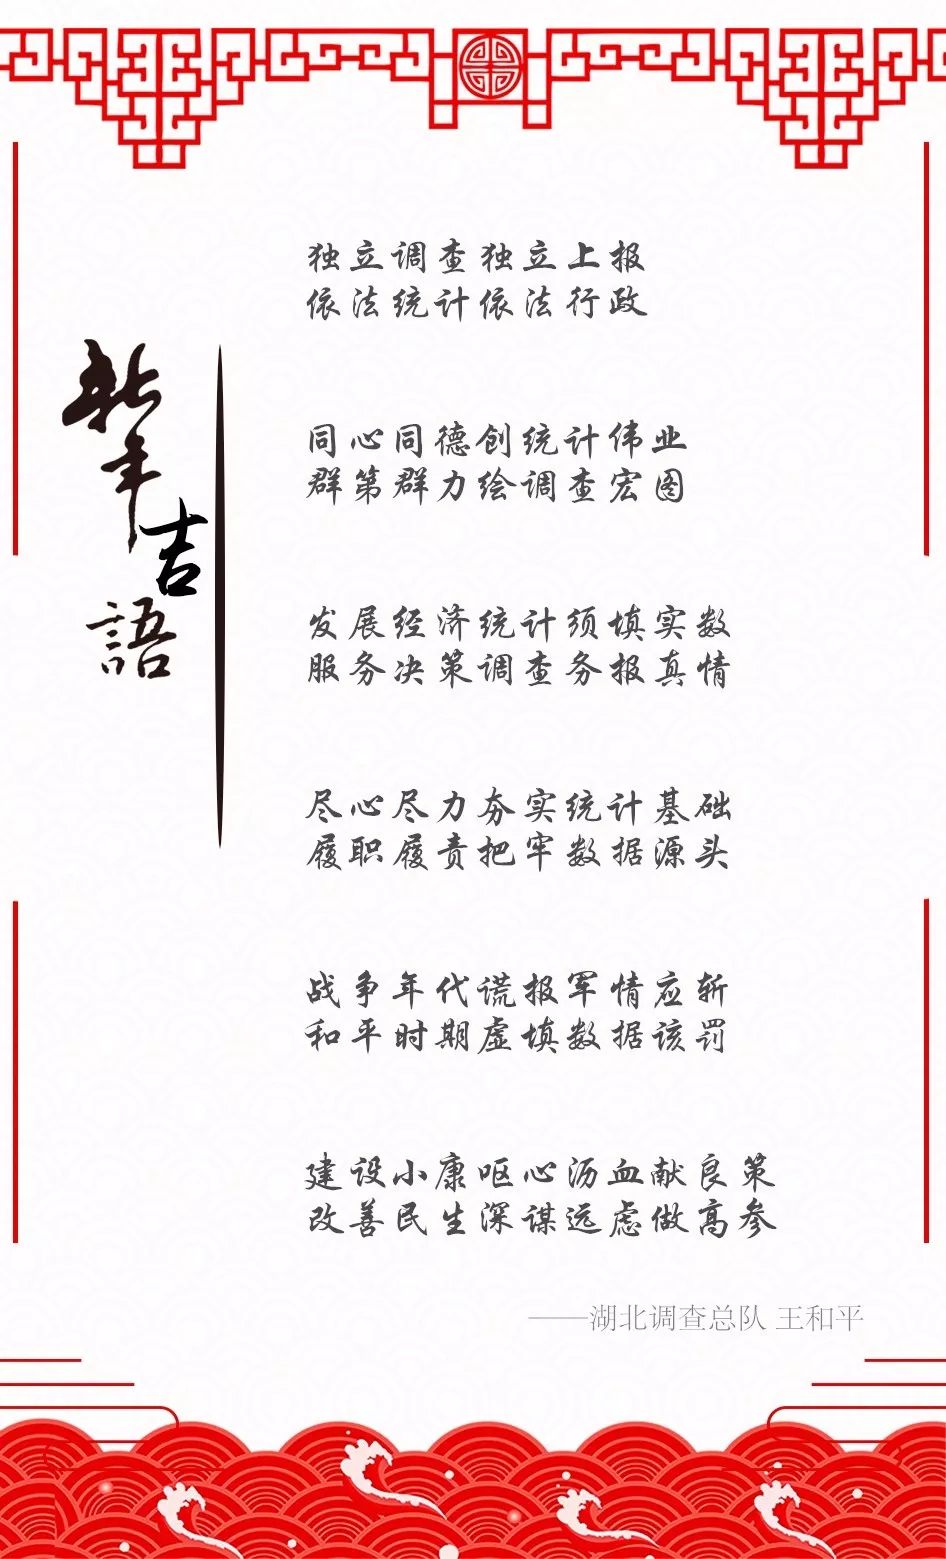 新年吉語
独立调查独立上报
依法统计依法行政
同心同德创统计伟业
群第群力绘调查宏图
发展经济统计须填实数
服务决策调查务报真情
尽心尽力夯实统计基础
履职履责把牢数据源头
战争年代谎报军情应斩
和平时期虚填数据该罚
建设小康呕心沥血献良策
改善民生深谋远虑做高参
——湖北调查总队 王和平